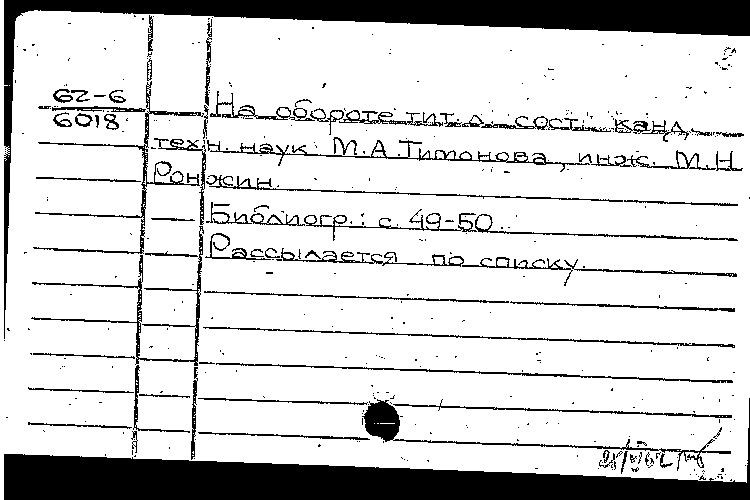 62-6
6018
На обороте тит. л. сост.: канд.
техн. наук М.А.Тимонова, инж. М.Н.
Ронжин.
Библиогр.: с. 49-50.
Рассылается по списку.